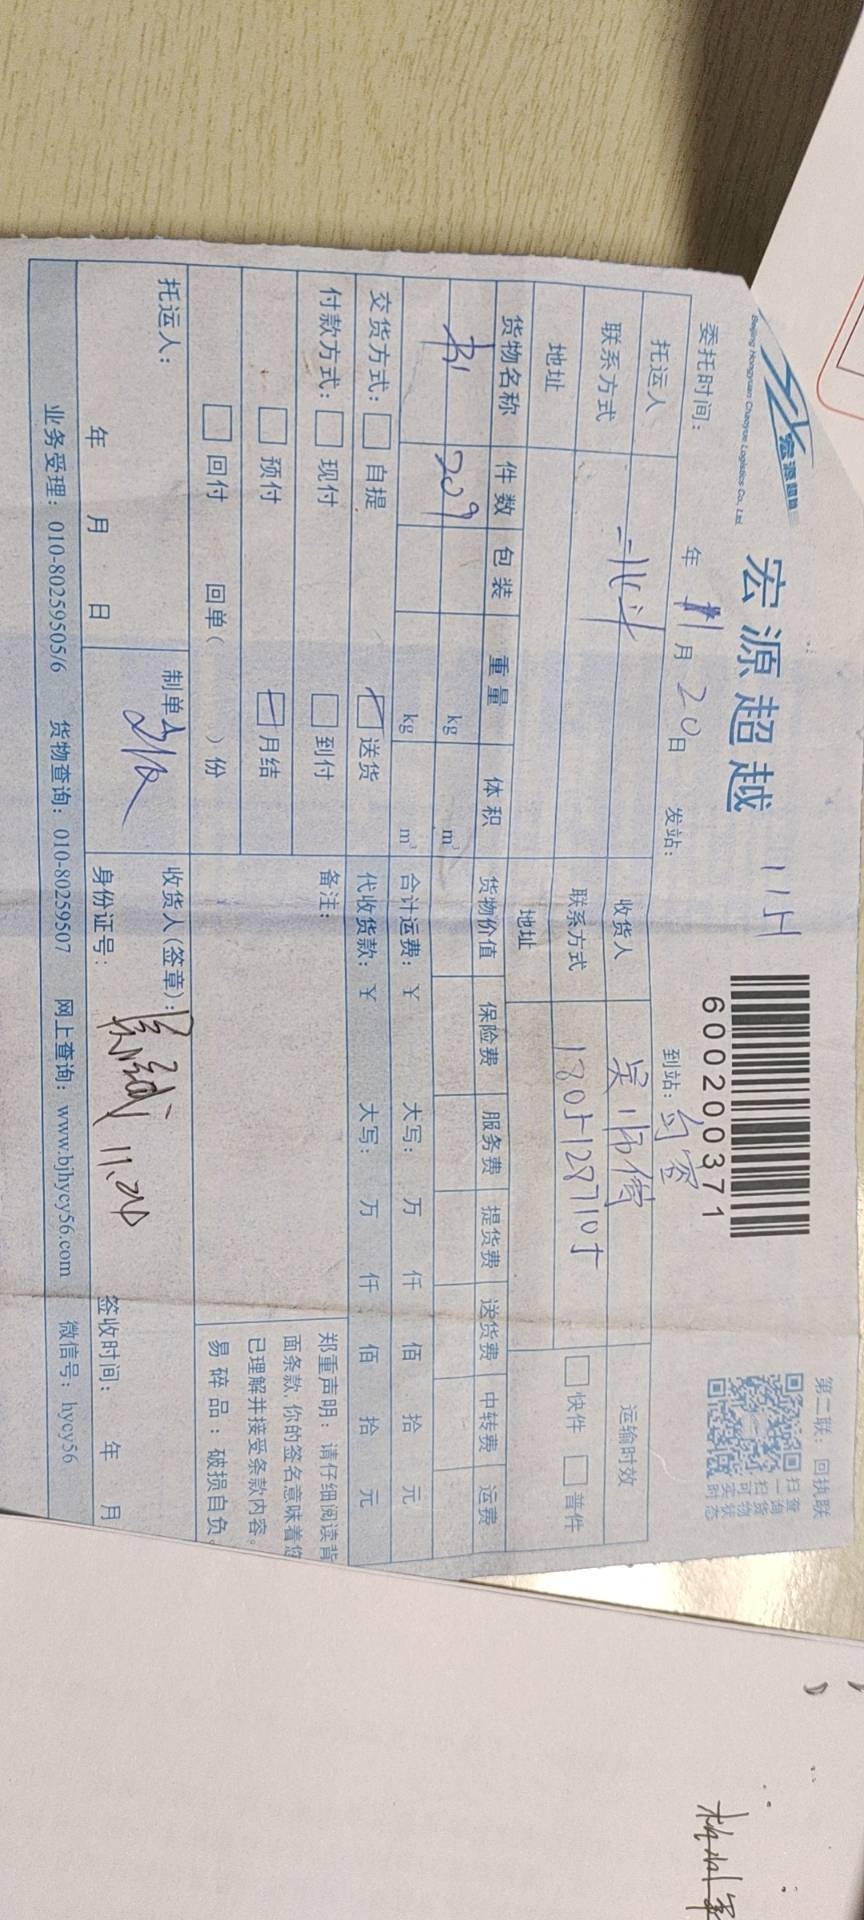 宏源超越
Beijing Hongyuan Chaoyue Logistics Co., Ltd.
宏源超越
115
600200371
第二联：回执联
扫一扫可实时
查询货物状态
委托时间： 年 11月20日 发站： 到站：句容
托运人 收货人 吴师傅 运输时效
联系方式 联系方式 18051287105 快件 普件
地址 地址
货物名称 件数 包装 重量 体积 货物价值 保险费 服务费 提货费 送货费 中转费 运费
209 kg m³
kg m³ 合计运费：￥ 大写： 万 仟 佰 拾 元
交货方式： 自提 送货 代收货款：￥ 大写： 万 仟 佰 拾 元
付款方式： 现付 到付 备注：
预付 月结
回付 回单（ ）份
郑重声明：请仔细阅读背
面条款，你的签名意味着您
已理解并接受条款内容。
易碎品：破损自负。
托运人： 制单 收货人（签章）：
年 月 日 身份证号： 11.20 签收时间： 年 月
业务受理：010-80259505/6 货物查询：010-80259507 网上查询：www.bjhycy56.com 微信号：hycy56